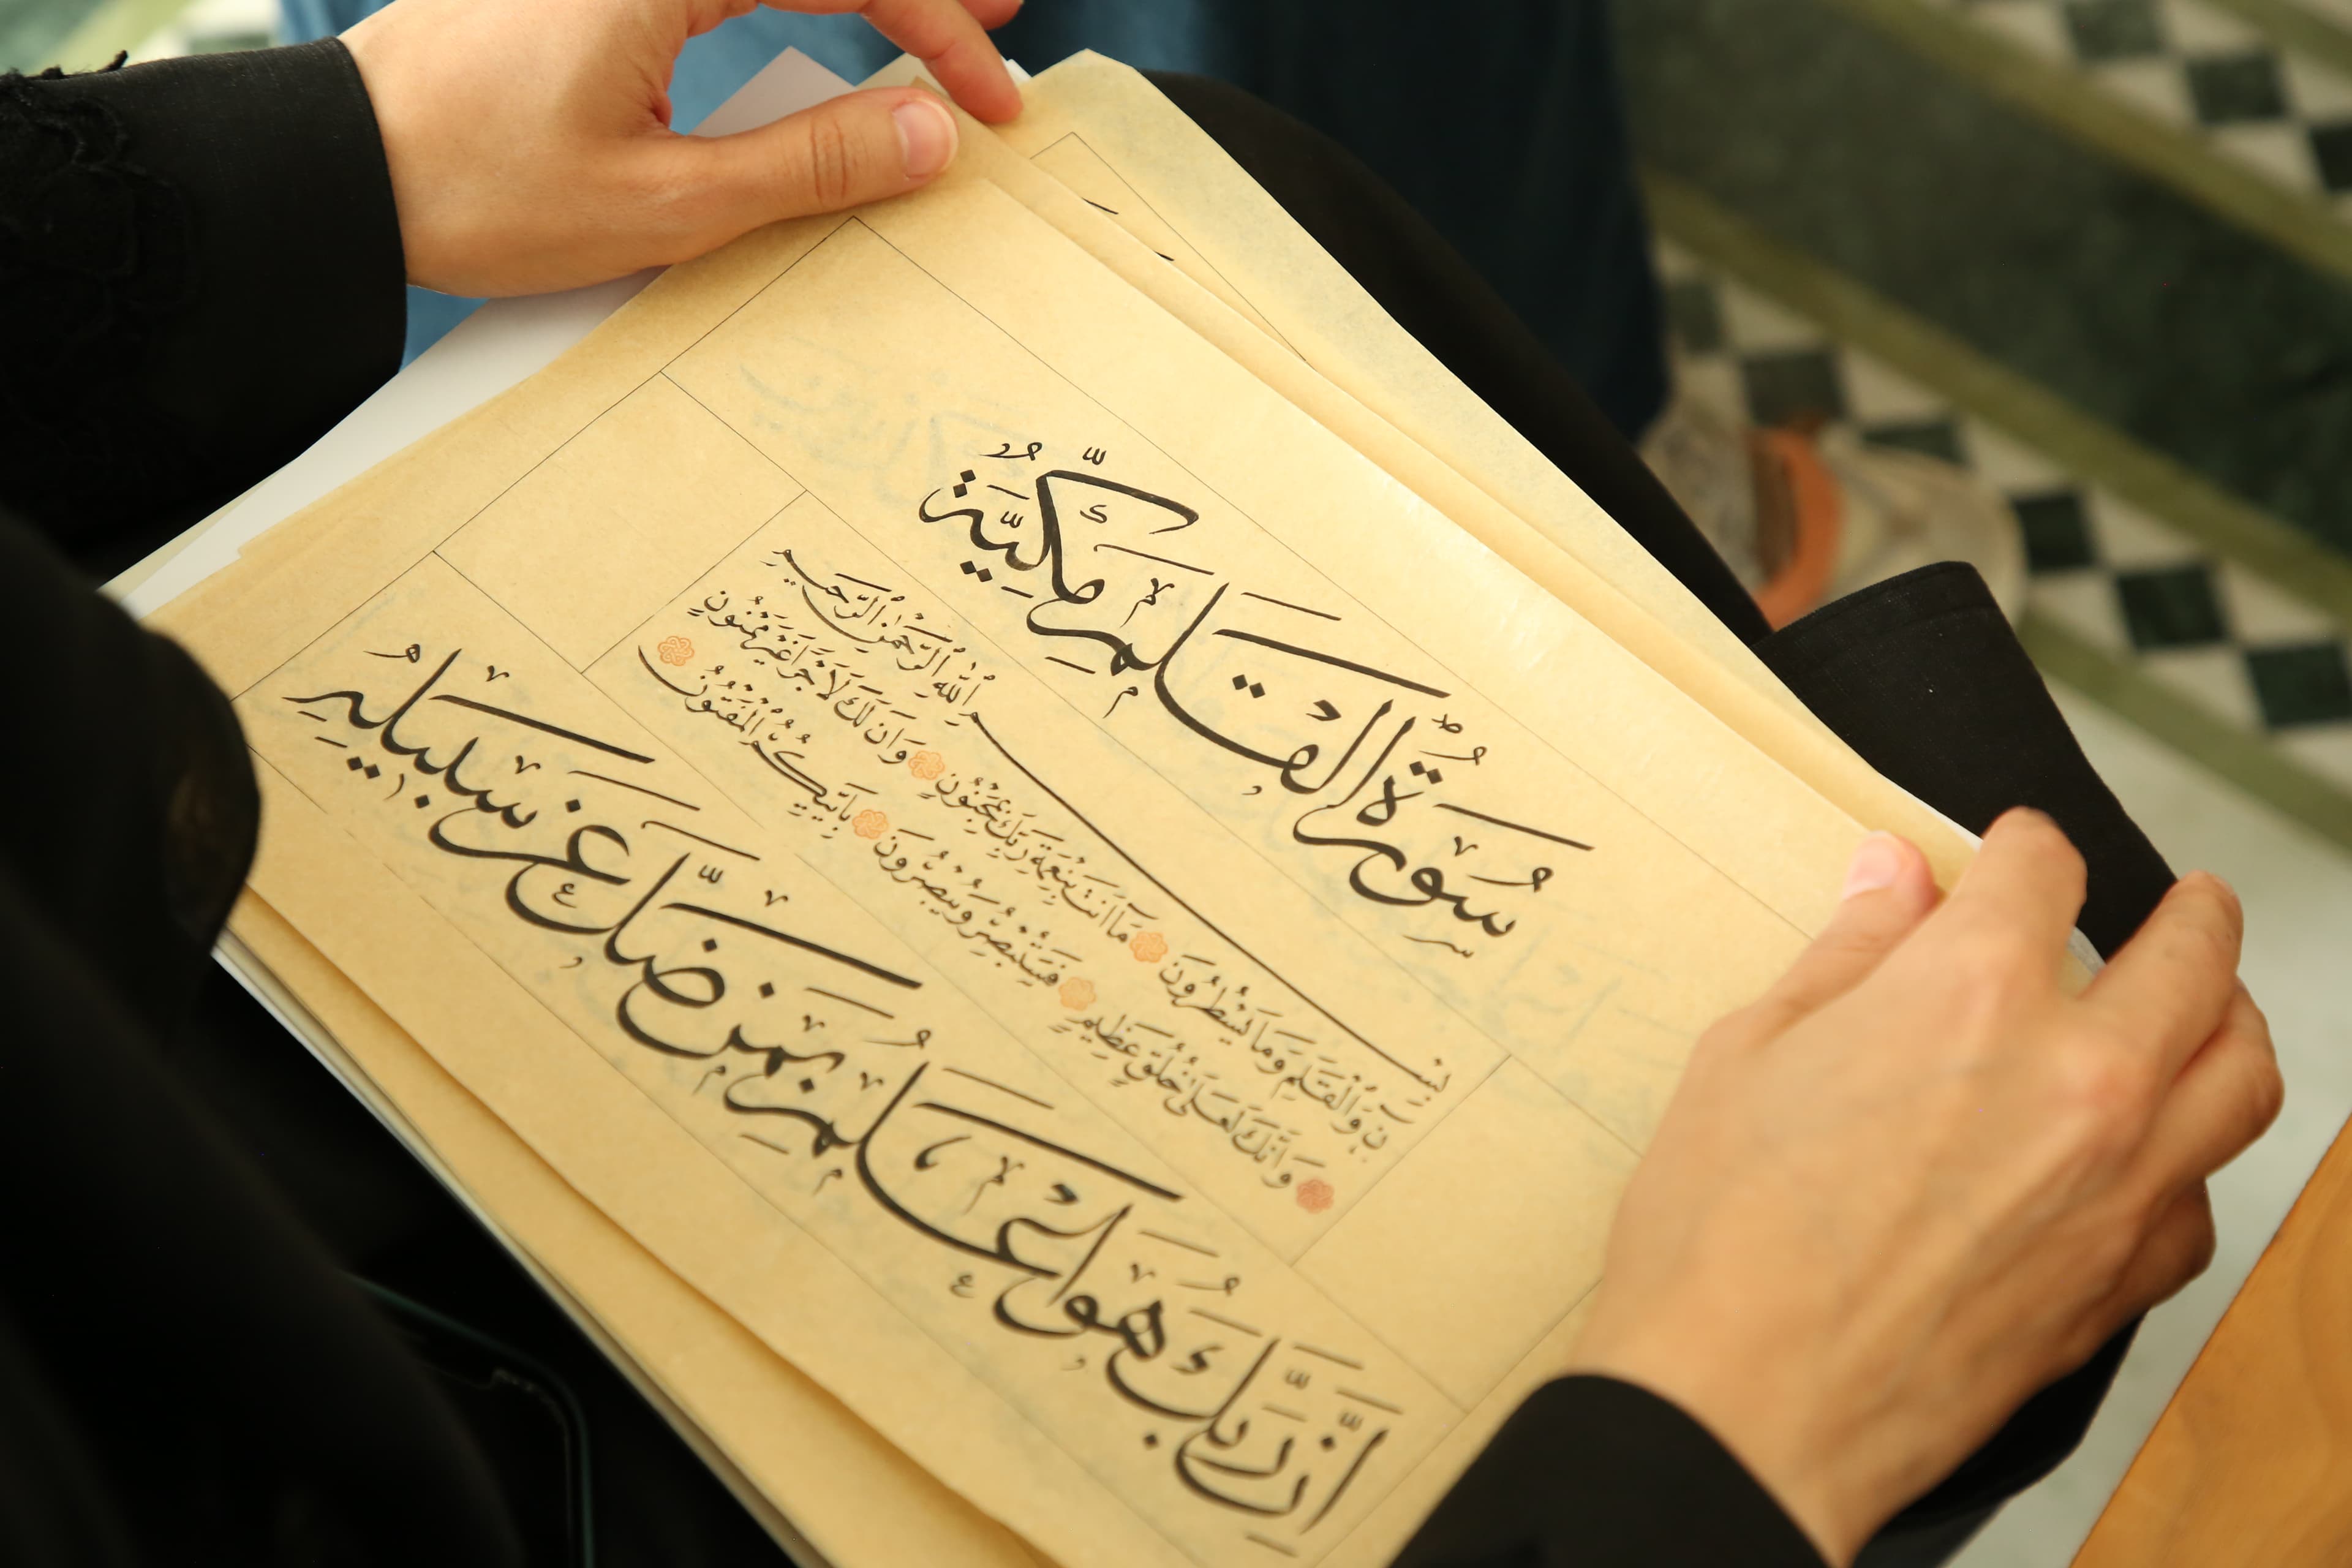 سُورَةُ الْقَلَمِ مَكِّيَّةٌ
بِسْمِ اللّٰهِ الرَّحْمٰنِ الرَّحِيمِ
نٓ وَالْقَلَمِ وَمَا يَسْطُرُونَ مَٓا اَنْتَ بِنِعْمَةِ رَبِّكَ بِمَجْنُونٍ وَاِنَّ لَكَ لَاَجْرًا غَيْرَ مَمْنُونٍ
وَاِنَّكَ لَعَلٰى خُلُقٍ عَظِيمٍ فَسَتُبْصِرُ وَيُبْصِرُونَ بِاَيِّكُمُ الْمَفْتُونُ
اِنَّ رَبَّكَ هُوَ اَعْلَمُ بِمَنْ ضَلَّ عَنْ سَبِيلِهِ